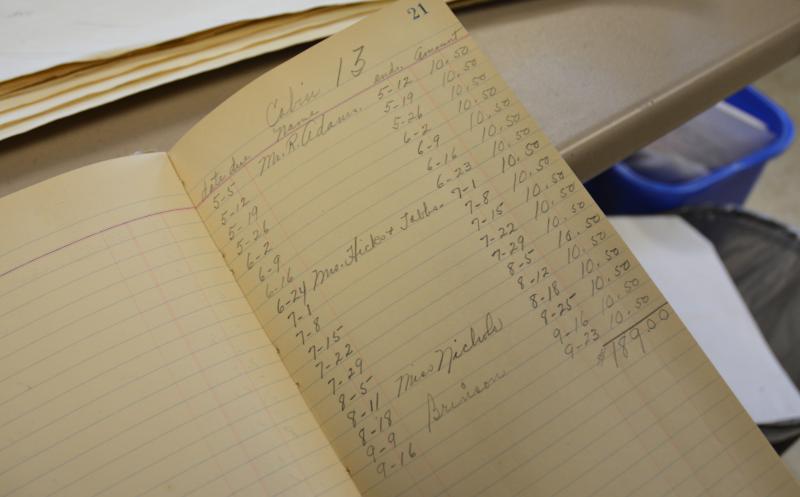 21
Cabin 13
date due Name ends Amount
5-5 Mr. R. Adams. 5-12 10.50
5-12 5-19 10.50
5-19 5-26 10.50
5-26 6-2 10.50
6-2 6-9 10.50
6-9 6-16 10.50
6-16 6-23 10.50
6-24 Mrs. Hicks + Tabbs. 7-1 10.50
7-1 7-8 10.50
7-8 7-15 10.50
7-15 7-22 10.50
7-22 7-29 10.50
7-29 8-5 10.50
8-5 8-12 10.50
8-11 Miss Nichols 8-18 10.50
8-18 8-25 10.50
9-9 Brinson 9-16 10.50
9-16 9-23 10.50
$189.00